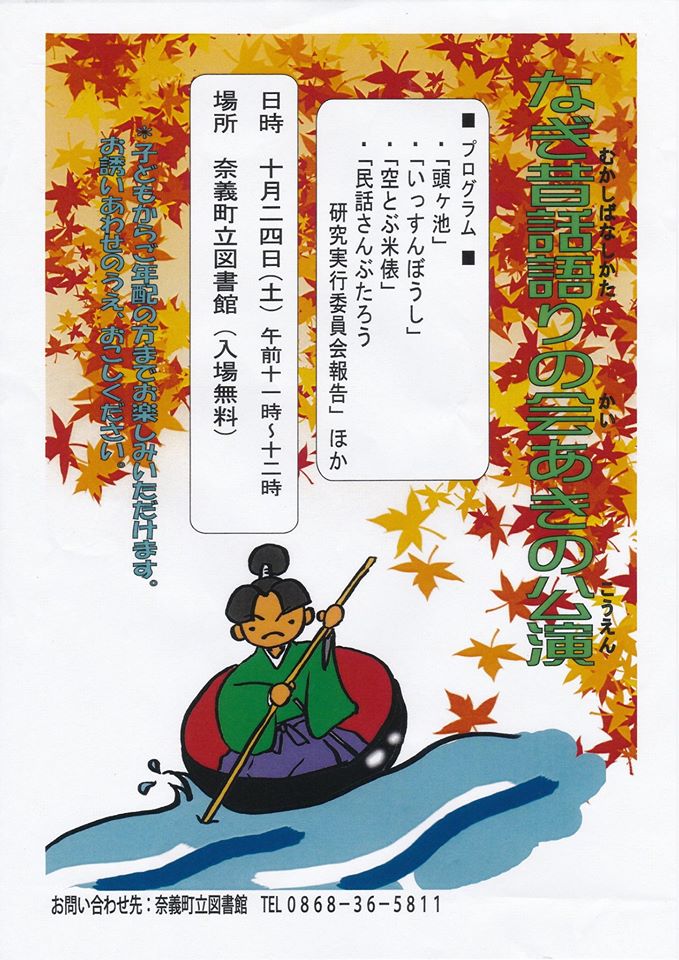 なぎ昔話語りの会あきの公演
むかしばなしかた
かい
こうえん
■ プログラム ■
・「頭ヶ池」
・「いっすんぼうし」
・「空とぶ米俵」
・「民話さんぶたろう
研究実行委員会報告」 ほか
日時 十月二四日(土) 午前十一時~十二時
場所 奈義町立図書館 (入場無料)
*子どもからご年配の方までお楽しみいただけます。
お誘いあわせのうえ、おこしください。
お問い合わせ先:奈義町立図書館 TEL 0868-36-5811